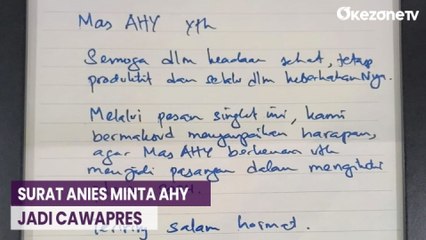 OkezoneTV
Mas AHY yth
Semoga dlm keadaan sehat, tetap
produktif dan selalu dlm keberkahanNya.
Melalui pesan singkat ini, kami
bermaksud menyampaikan harapan,
agar Mas AHY berkenan utk
menjadi pasangan dalam mengikuti
SURAT ANIES MINTA AHY
JADI CAWAPRES
salam hormat.